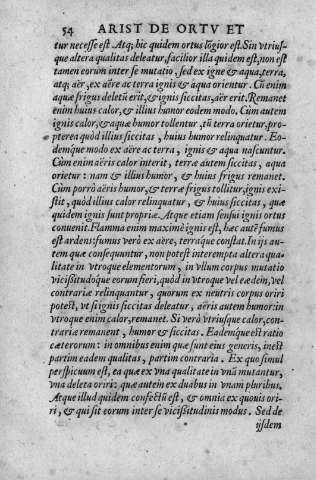 54 ARIST DE ORTV ET
tur necesse est Atq; hic quidem ortus lõgior est. Sin vtrius-
que altera qualitas deleatur, facilior illa quidem est, non est
tamen eorum inter se mutatio, sed ex igne & aqua, terra,
atq; aër, ex aëre ac terra ignis & aqua orientur. Cũ enim
aquæ frigus deletũ erit, & ignis siccitas, aër erit. Remanet
enim huius calor, & illius humor eodem modo. Cùm autem
ignis calor, & aquæ humor tollentur, tũ terra orietur, pro-
pterea quòd illius siccitas, huius humor relinquatur. Eo-
démque modo ex aëre ac terra, ignis & aqua nascuntur.
Cùm enim aëris calor interit, terræ autem siccitas, aqua
orietur: nam & illius humor, & huius frigus remanet.
Cùm porrò aëris humor, & terræ frigus tollitur, ignis exi-
stit, quòd illius calor relinquatur, & huius siccitas, quæ
quidem ignis sunt propriæ. Atque etiam sensui ignis ortus
conuenit. Flamma enim maximè ignis est, hæc autẽ fumus
est ardens: fumus verò ex aëre, terráque constat. In ijs au-
tem quæ consequuntur, non potest interempta altera qua-
litate in vtroque elementorum, in vllum corpus mutatio
vicißitudóque eorum fieri, quòd in vtroque vel eædem, vel
contrariæ relinquantur, quorum ex neutris corpus oriri
potest, vt si ignis siccitas deleatur, aëris autem humor: in
vtroque enim calor, remanet. Si verò vtriusque calor, con-
trariæ remanent, humor & siccitas. Eadémque est ratio
cæterorum: in omnibus enim quæ sunt eius generis, inest
partim eadem qualitas, partim contraria. Ex quo simul
perspicuum est, ea quæ ex vna qualitate in vnũ mutantur,
vna deleta oriri: quæ autem ex duabus in vnam pluribus.
Atque illud quidem confectũ est, & omnia ex quouis ori-
ri, & qui sit eorum inter se vicißitudinis modus. Sed de
ijsdem